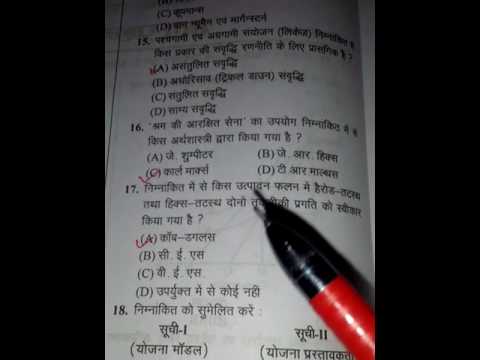 (C) कूपमान्स
(D) वान न्यूमैन एवं मार्गेन्स्टर्न
15. पश्चगामी एवं अग्रगामी संयोजन (लिंकेज) निम्नांकित में
किस प्रकार की संवृद्धि रणनीति के लिए प्रासंगिक है ?
(A) असंतुलित संवृद्धि
(B) अधोरिसाव (ट्रिकल डाउन) संवृद्धि
(C) संतुलित संवृद्धि
(D) साम्य संवृद्धि
16. 'श्रम की आरक्षित सेना' का उपयोग निम्नांकित में से
किस अर्थशास्त्री द्वारा किया गया है ?
(A) जे. शुम्पीटर (B) जे. आर. हिक्स
(C) कार्ल मार्क्स (D) टी.आर माल्थस
17. निम्नांकित में से किस उत्पादन फलन में हैरोड–तटस्थ
तथा हिक्स–तटस्थ दोनों प्रगति को स्वीकार
किया गया है ?
(A) कॉब–डगलस
(B) सी. ई. एस
(C) वी. ई. एस.
(D) उपर्युक्त में से कोई नहीं
18. निम्नांकित को सुमेलित करें :
सूची-I सूची-II
(योजना मॉडल) (योजना प्रस्तावकर्ता